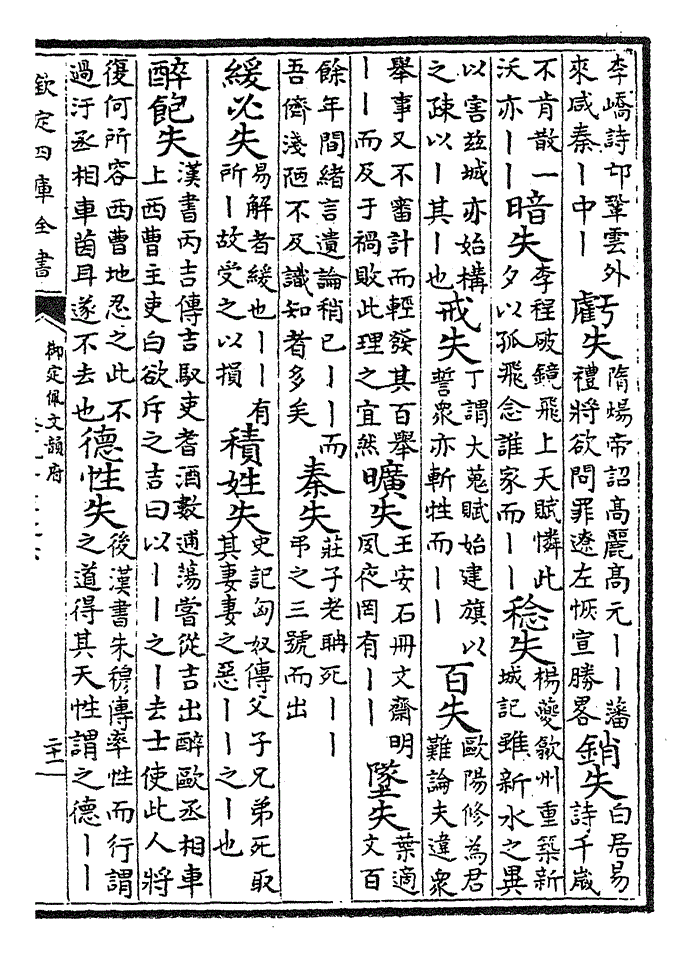 李嶠詩卭鞏雲外來咸秦丨中丨 虧失 隋煬帝詔高麗高元丨丨藩禮將欲問罪遼左恢宣勝畧 銷失 白居易詩千歲
不肯散一沃亦丨丨 暗失 李程破鏡飛上天賦憐此夕以孤飛念誰家而丨丨 稔失 楊夔歙州重築新城記雖新水之異
以害玆城亦始構之疎以丨其丨也 戒失 丁謂大蒐賦始建旗以誓衆亦斬牲而丨丨 百失 歐陽修為君難論夫違衆
舉事又不審計而輕發其百舉丨丨而及于禍敗此理之宜然 曠失 王安石册文齋明夙夜罔有丨丨 墜失 葉適文百
餘年間緒言遺論稍已丨丨而吾儕淺陋不及識知者多矣 秦失 莊子老聃死丨丨弔之三號而出
緩必失 易解者緩也丨丨有所丨故受之以損 積姓失 史記匈奴傳父子兄弟死取其妻妻之惡丨丨之丨也
醉飽失 漢書丙吉傳吉馭吏耆酒數逋蕩嘗從吉出醉歐丞相車上西曹主吏白欲斥之吉曰以丨丨之丨去士使此人將
復何所容西曹地忍之此不過汙丞相車茵耳遂不去也 德性失 後漢書朱穆傳率性而行謂之道得其天性謂之德丨丨
欽定四庫全書
御定佩文韻府
二十二